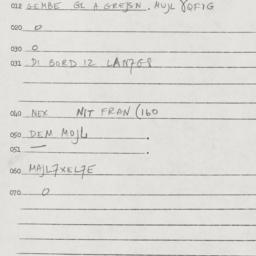 012 GEMBE GL A GREJSN. MUJL
020 0
030 0
031 DI BORD 12 LANTGS
040 NEX NIT FRAN (160
050 DEM MOJL .
051 — .
060 MAJL7XEL7E
070 0